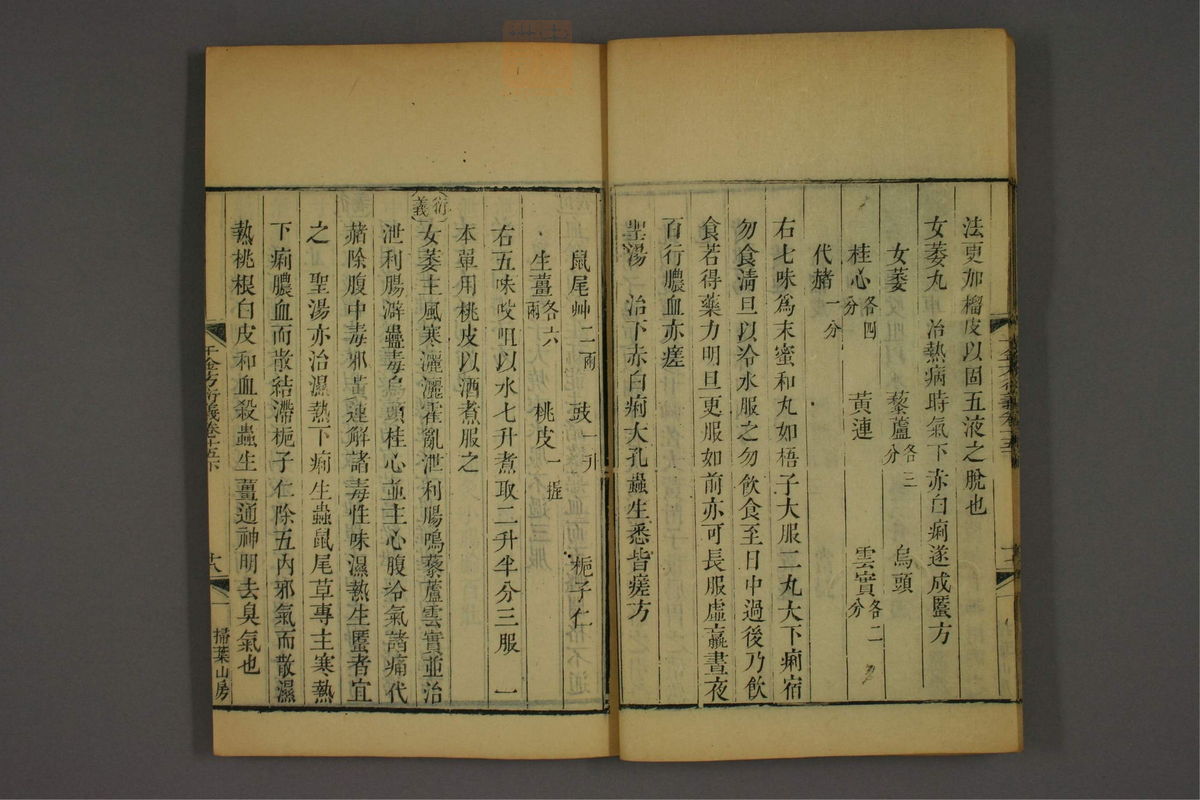 法更加榴皮以固五液之脫也
女萎丸　治熱病時氣下赤白痢遂成䘌方
女萎　藜蘆各三分　烏頭
桂心各四分　黃連　雲實各二分
代赭一分
右七味爲末蜜和丸如梧子大服二丸大下痢宿
勿食清旦以冷水服之勿飲食至日中過後乃飲
食若得藥力明旦更服如前亦可長服虛羸晝夜
百行膿血亦瘥
聖湯　治下赤白痢大孔蟲生悉皆瘥方
鼠尾艸二兩　豉一升　梔子仁
生薑各六兩　桃皮一握
右五味㕮咀以水七升煮取二升半分三服　一
本單用桃皮以酒煮服之
衍義
女萎主風寒灑灑霍亂泄利腸鳴藜蘆雲實並治
泄利腸澼蠱毒烏頭桂心並主心腹冷氣諸痛代
赭除腹中毒邪黃連解諸毒性味濕熱生䘌者宜
之　聖湯亦治濕熱下痢生蟲鼠尾草專主寒熱
下痢膿血而散結滯梔子仁除五內邪氣而散濕
熱桃根白皮和血殺蟲生薑通神明去臭氣也
千金方衍義卷十五下
十八
掃葉山房